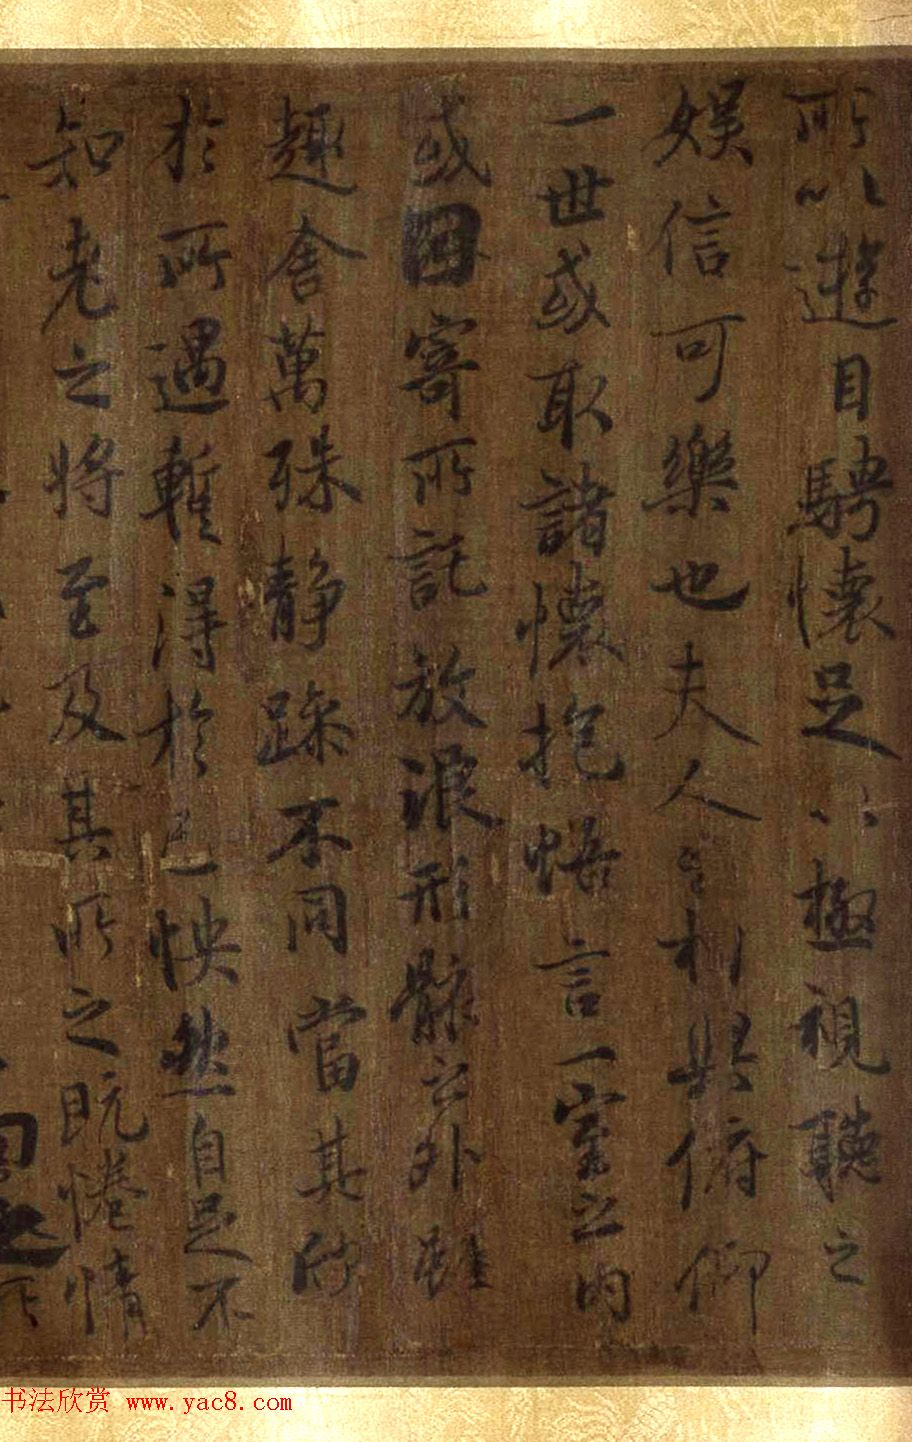 所以遊目騁懷足以極視聽之
娛信可樂也夫人之相與俯仰
一世或取諸懷抱悟言一室之內
或因寄所託放浪形骸之外雖
趣舍萬殊靜躁不同當其欣
於所遇暫得於己怏然自足不
知老之將至及其所之既惓情
书法欣赏 www.yac8.com